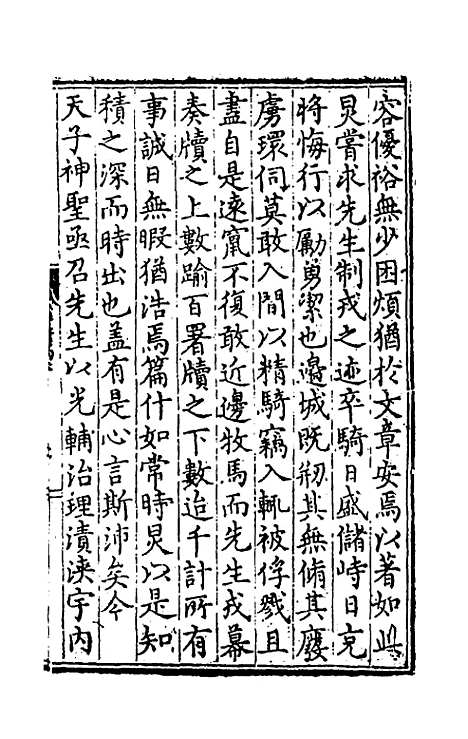 容優裕無少困煩猶於文章安焉以著如此
炅嘗求先生制戎之迹卒騎日盛儲峙日充
將悔行以勵勇潔也邉城既剏其無脩其廢
虜環伺莫敢入間以精騎竊入輒被俘戮且
盡自是遠竄不復敢近邊牧馬而先生戎幕
奏牘之上數踰百署牘之下數迨千計所有
事誠日無暇猶浩焉篇什如常時炅以是知
積之深而時出也盖有是心言斯沛矣今
天子神聖亟召先生以光輔治理漬浹宇內